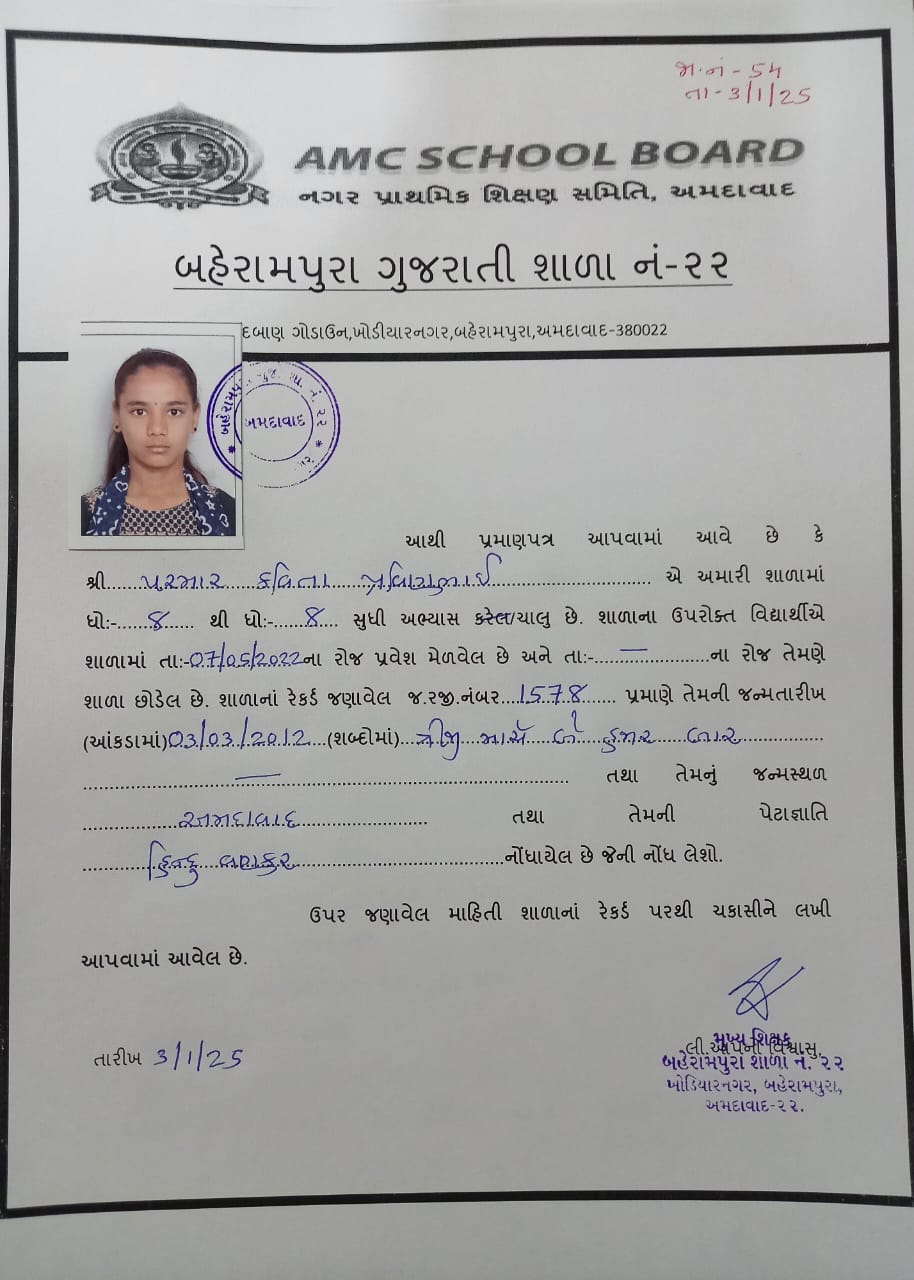 જા.નં - 54
તા - 3/1/25
AMC SCHOOL BOARD
નગર પ્રાથમિક શિક્ષણ સમિતિ, અમદાવાદ
બહેરામપુરા ગુજરાતી શાળા નં-૨૨
દબાણ ગોડાઉન,ખોડીયારનગર,બહેરામપુરા,અમદાવાદ-380022
અમદાવાદ
આથી પ્રમાણપત્ર આપવામાં આવે છે કે
શ્રી.....પરમાર કવિતા પ્રવિણભાઈ..... એ અમારી શાળામાં
ધો:-......8..... થી ધો:-......8.... સુધી અભ્યાસ કરેલ/ચાલુ છે. શાળાના ઉપરોક્ત વિદ્યાર્થીએ
શાળામાં તા:-07/05/2022ના રોજ પ્રવેશ મેળવેલ છે અને તા:-.....—.....ના રોજ તેમણે
શાળા છોડેલ છે. શાળાનાં રેકર્ડ જણાવેલ જ.રજી.નંબર...1578...... પ્રમાણે તેમની જન્મતારીખ
(આંકડામાં)03/03/2012...(શબ્દોમાં)...ત્રીજી માર્ચ બે હજાર બાર.....
.....—..... તથા તેમનું જન્મસ્થળ
.....અમદાવાદ..... તથા તેમની પેટાજ્ઞાતિ
.....હિન્દુ વણકર.....નોંધાયેલ છે જેની નોંધ લેશો.
ઉપર જણાવેલ માહિતી શાળાનાં રેકર્ડ પરથી ચકાસીને લખી
આપવામાં આવેલ છે.
તારીખ 3/1/25
મુખ્ય શિક્ષક
લી.આપનો વિશ્વાસુ,
બહેરામપુરા શાળા નં. ૨૨
ખોડિયારનગર, બહેરામપુરા,
અમદાવાદ-૨૨.